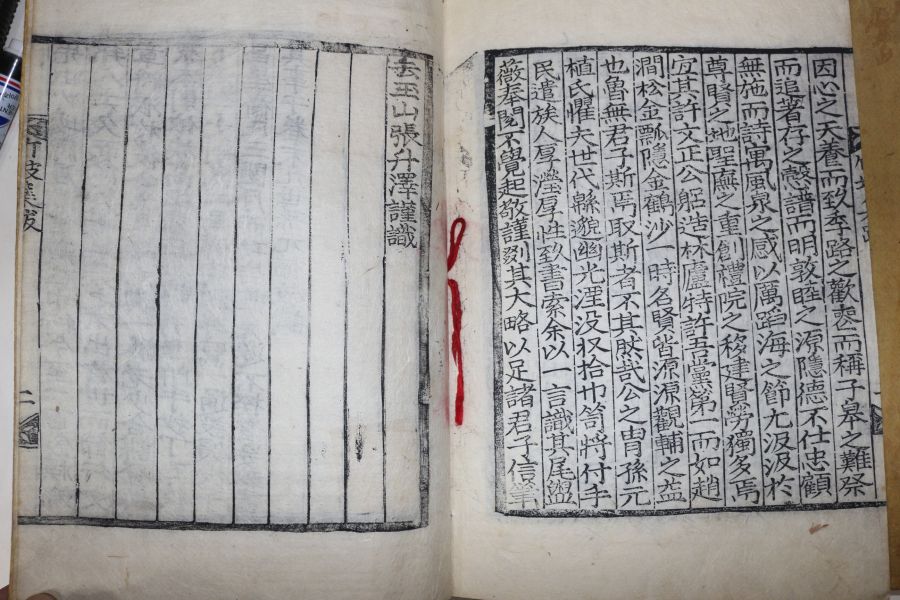 因心之天養而致季路之歡喪而稱子皐之難祭
而追著存之慤譜而明敦睦之源隱德不仕忠顧
無施而詩寓風泉之感以厲蹈海之節尤汲汲於
尊賢之地聖廡之重創禮院之移建賢勞獨多焉
宜其許文正公躬造林廬特許吾黨第一而如趙
澗松金瓢隱金鶴沙一時名賢皆源源觀輔之益
也魯無君子斯焉取斯者不其然哉公之胄孫元
植氏懼夫世代緜邈幽光湮没収拾巾笥將付手
民遣族人厚瀅厚性致書索余以一言識其尾盥
薇奉閱不覺起敬謹剟其大略以足諸君子信筆
云玉山張升澤謹識
竹坡集跋
二